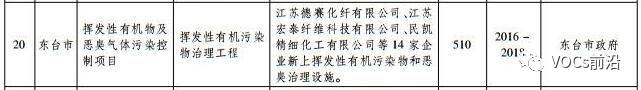 20
东台市
挥发性有机物及
恶臭气体污染控
制项目
挥发性有机污染
物治理工程
江苏德赛化纤有限公司、江苏
宏泰纤维科技有限公司、民凯
精细化工有限公司等 14 家企
业新上挥发性有机污染物和恶
臭治理设施。
510
2016－
2018
东台市政府
VOCs前沿